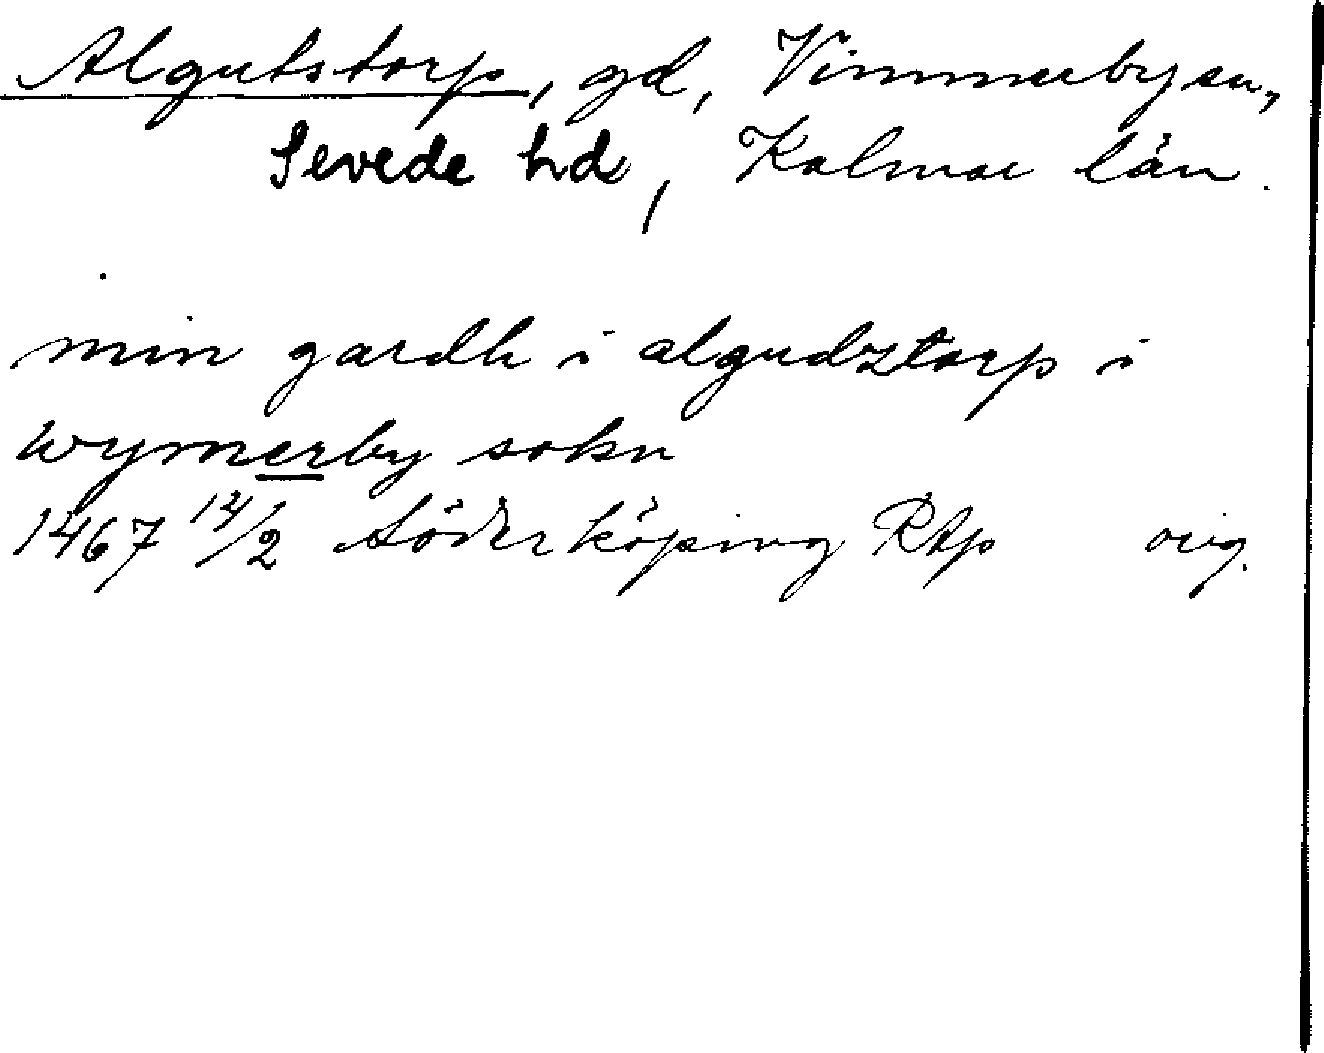 Algutstorp, gd, Vimmerby sn,
Sevede hd, Kalmar län.
min gardh i algudztorp i
wymerby sokn
1467 14/2 Söderköping RAp orig.